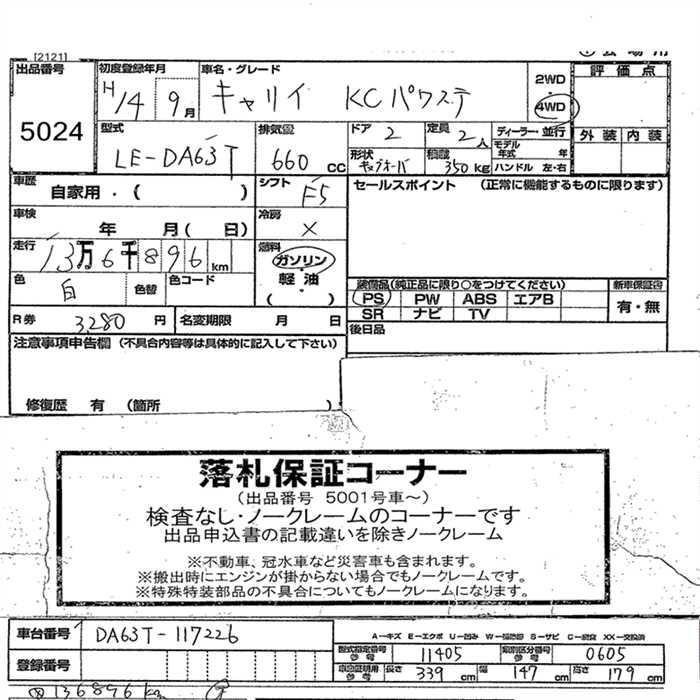 [2121]
出品番号
5024
初度登録年月
H14 9月
車名・グレード
キャリイ KCパワステ
2WD
4WD
評価点
型式
LE-DA63T
排気量
660 CC
ドア 2
定員 2人
ディーラー・並行
モデル年式 年
外装 内装
形状
積載 350kg
ハンドル 左・右
車歴
自家用・( )
シフト F5
セールスポイント (正常に機能するものに限ります)
車検
年 月( 日)
冷房 ×
走行
13万6千896km
燃料
ガソリン
軽油
( )
色 白
色替
色コード
装備品(純正品に限り○をつけてください)
新車保証書
PS PW ABS エアB
有・無
SR ナビ TV
R券 3,280円
名変期限 月 日
後日品
注意事項申告欄 (不具合内容等は具体的に記入して下さい)
修復歴 有 (箇所 )
落札保証コーナー
(出品番号 5001号車～)
検査なし・ノークレームのコーナーです
出品申込書の記載違いを除きノークレーム
※不動車、冠水車など災害車も含まれます。
※搬出時にエンジンが掛からない場合でもノークレームです。
※特殊特装部品の不具合についてもノークレームになります。
車台番号 DA63T-117226
A-キズ E-エクボ U-凹み W-補修跡 S-サビ C-腐食 XX-交換済
登録番号
型式指定番号参考 11405
類別区分番号参考 0605
車両証明用参考 長さ 339cm 幅 147cm 高さ 179cm
136896km